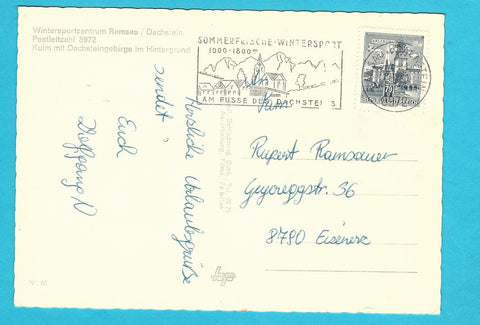 Wintersportzentrum Ramsau / Dachstein
Postleitzahl 8972
Kulm mit Dachsteingebirge im Hintergrund
SOMMERFRISCHE-WINTERSPORT
1000-1800m
AM FUSSE DES DACHSTEINS
Herzliche Urlaubsgrüße
sendet
Euch
Wolfgang N
Rupert Ramsauer
Gsyereggstr. 36
8790 Eisenerz